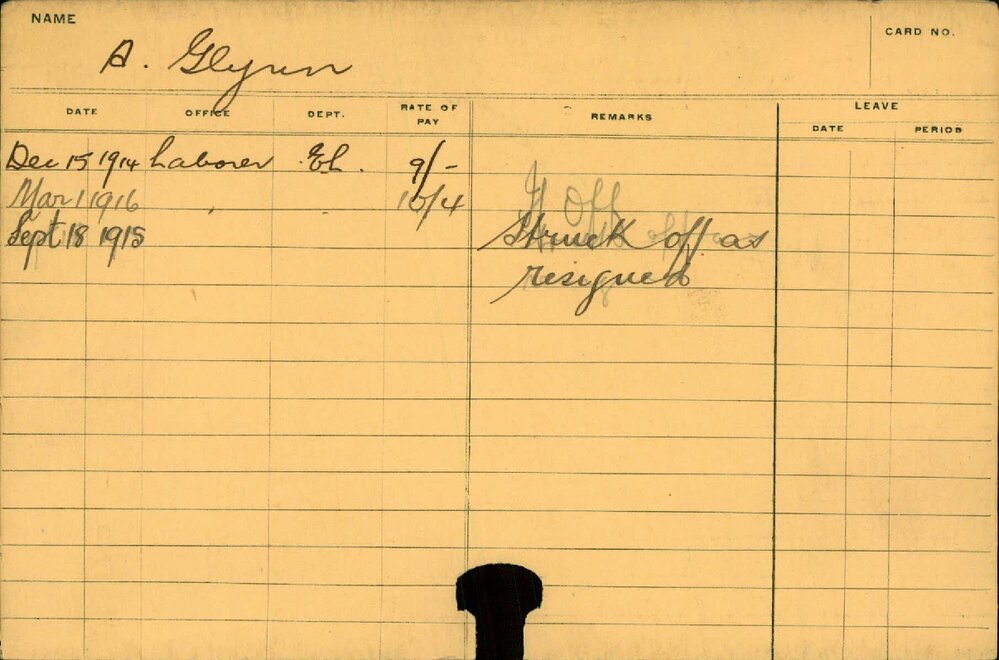 NAME
CARD NO.
A. Glynn
DATE OFFICE DEPT. RATE OF PAY REMARKS LEAVE
DATE PERIOD
Dec 15 1914 Laborer El. 9/-
Mar 1 1916 " " 10/4 Off
Sept 18 1915 Struck off as
resigned